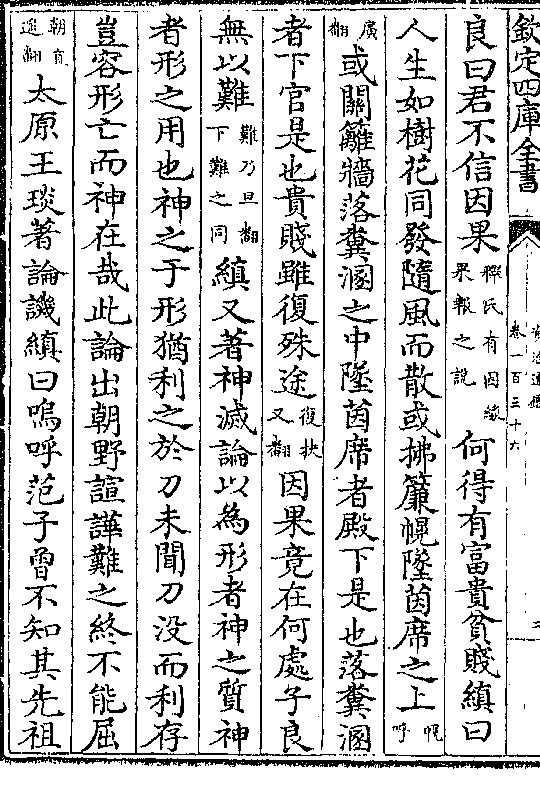 欽定四庫全書
資治通鑑
卷一百三十六
良曰君不信因果釋氏有因緣果報之說何得有富貴貧賤縝曰
人生如樹花同發隨風而散或拂簾幌墜茵席之上幌呼
廣翻或關籬牆落糞溷之中墜茵席者殿下是也落糞溷
者下官是也貴賤雖復殊途復扶又翻因果竟在何處子良
無以難難乃旦翻下難之同縝又著神滅論以為形者神之質神
者形之用也神之于形猶利之於刀未聞刀没而利存
豈容形亡而神在哉此論出朝野諠譁難之終不能屈
朝直遥翻太原王琰著論譏縝曰嗚呼范子曾不知其先祖